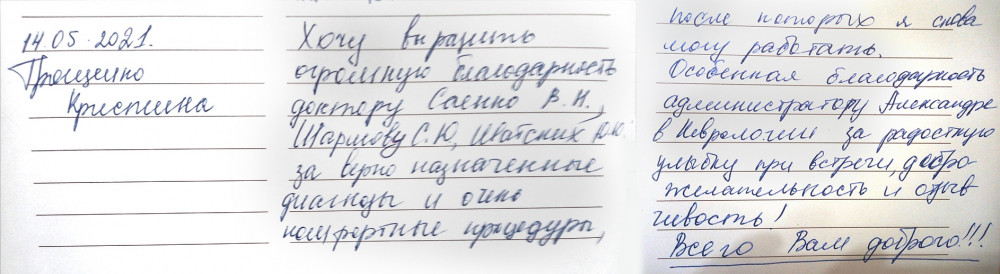 14.05.2021.
Прощенко
Кристина
Хочу выразить
огромную благодарность
доктору Саенко В.И.,
Шармову С.Ю,
за верно назначенные
диагнозы и очень
комфортные процедуры,
после которых я снова
могу работать.
Особенная благодарность
администратору Александре
в Неврологии за радостную
улыбку при встречи, добро
желательность и отзыв
чивость!
Всего Вам доброго!!!